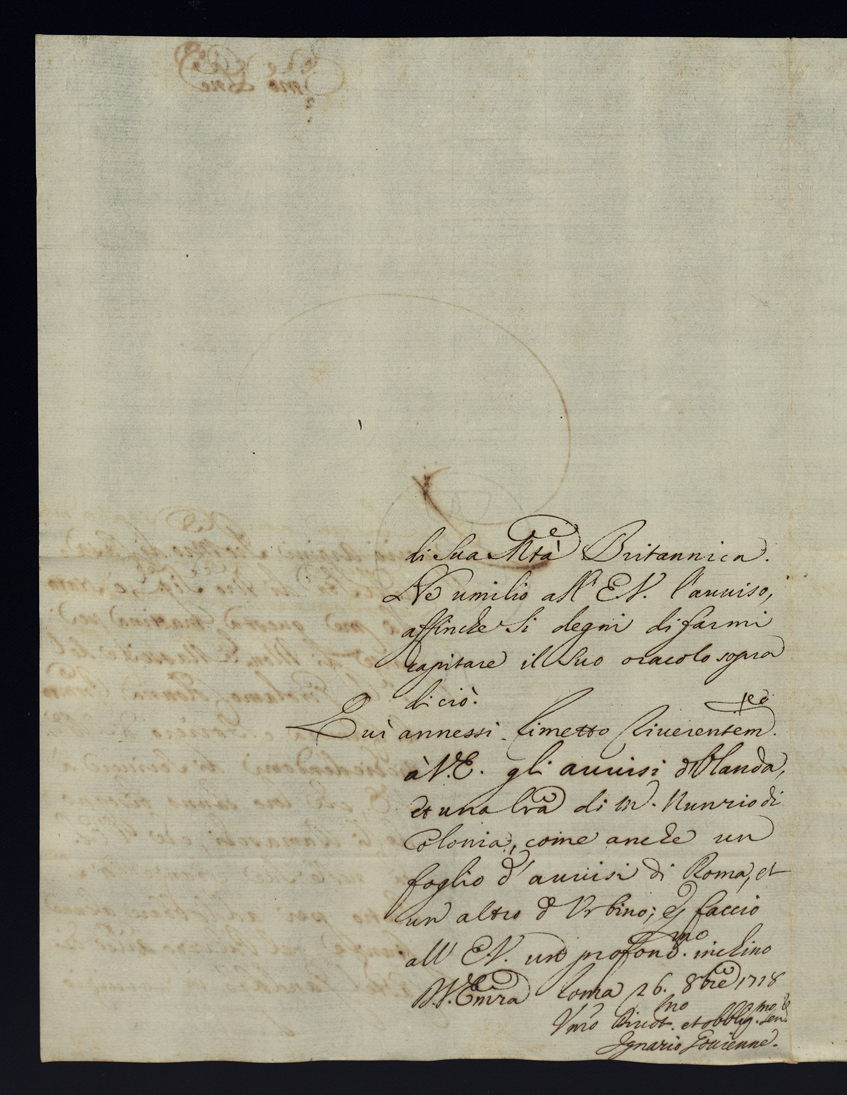 di Sua Mtà Britannica.
Ne umilio all' E.V. l'avviso,
affinche si degni di farmi
capitare il suo oracolo sopra
di ciò.
Quì annessi rimetto riverentem.te
à V.E. gli avvisi d'Olanda,
et una lrã di M. Nunzio di
Colonia, come anche un
foglio d'avvisi di Roma, et
un altro d'Urbino; e faccio
all' E.V. un profond.mo inchino
D.V. Emza Roma 26. 8bre 1718
Vmo Divot.mo et obblig.mo
Ignazio